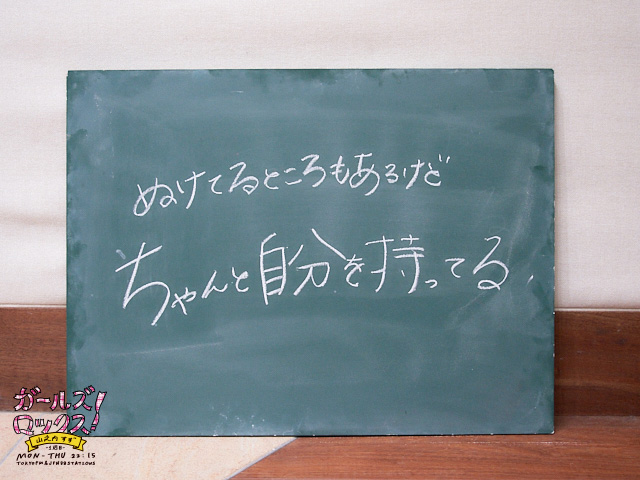 ぬけてるところもあるけど
ちゃんと自分を持ってる、
ガールズ
ロックス!
山之内すず
MON-THU 22:15
TOKYOFM&JFN38STATIONS